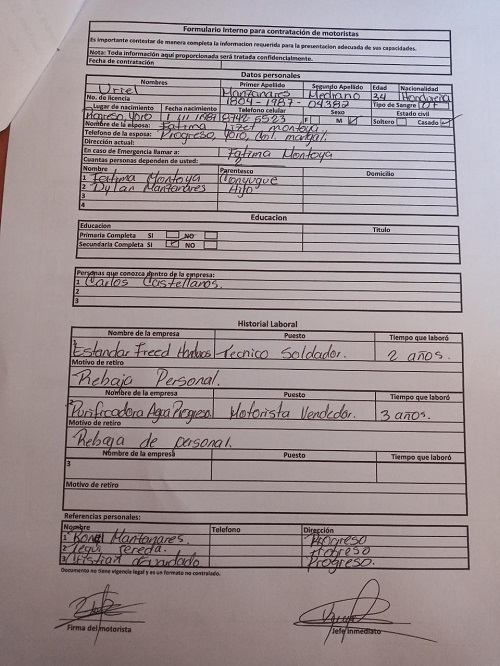 Formulario Interno para contratación de motoristas
Es importante contestar de manera completa la informacion requerida para la presentacion adecuada de sus capacidades.
Nota: Toda información aquí proporcionada será tratada confidencialmente.
Fecha de contratación
Datos personales
Nombres Primer Apellido Segundo Apellido Edad Nacionalidad
Uriel Manzanares Medrano 34 Hondureña
No. de licencia 1804-1987-04382 Tipo de Sangre
Lugar de nacimiento Fecha nacimiento Telefono celular Sexo Estado civil
Progreso, Yoro 1987 8742 5523 F M Soltero Casado
Nombre de la esposa: Fatima Lizet montoya
Telefono de la esposa: Progreso, Yoro,
Dirección actual:
En caso de Emergencia llamar a: Fatima Montoya
Cuantas personas dependen de usted: 2
Nombre Parentesco Domicilio
1 Fatima Montoya Conyugue
2 Dylan Mantanares Hijo
3
4
Educacion
Educacion Titulo
Primaria Completa SI NO
Secundaria Completa SI NO
Personas que conozca dentro de la empresa:
1 Carlos Castellanos.
2
3
Historial Laboral
Nombre de la empresa Puesto Tiempo que laboró
1 Estandar Freed Hondura Tecnico Soldador. 2 años.
Motivo de retiro
Rebajo Personal.
Nombre de la empresa Puesto Tiempo que laboró
2 Purificadora Agua Progreso Motorista Vendedor. 3 años.
Motivo de retiro
Rebaja de personal.
Nombre de la empresa Puesto Tiempo que laboró
3
Motivo de retiro
Referencias personales:
Nombre Telefono Dirección
1 Mantanares. Progreso
2 Pereda. Progreso
3 Cristian Progreso.
Documento no tiene vigencia legal y es un formato no controlado.
Firma del motorista Jefe inmediato